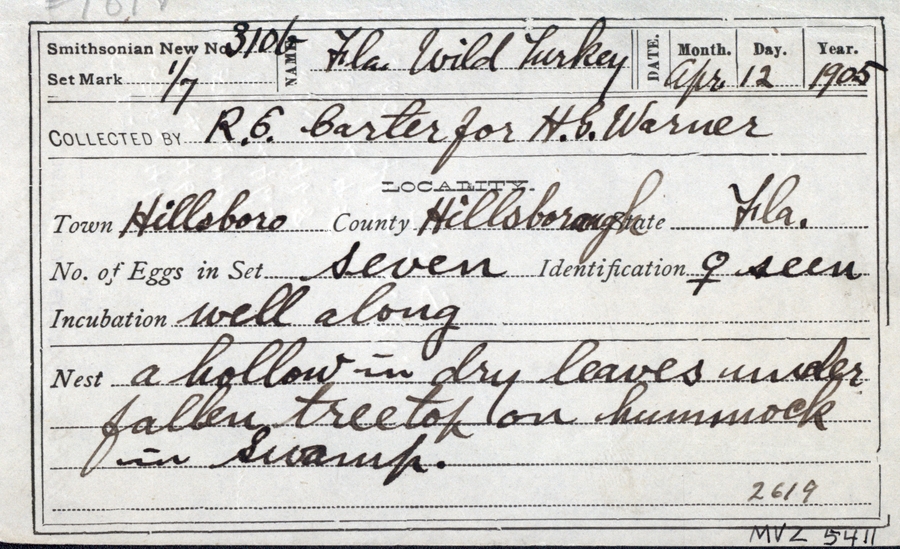 Smithsonian New No. 310b NAME Fla. Wild Turkey DATE. Month. Day. Year.
Set Mark 1/7 Apr 12 1905
COLLECTED BY R.E. Carter for H.E. Warner
LOCALITY.
Town Hillsboro County Hillsborough State Fla.
No. of Eggs in Set seven Identification ♀ seen
Incubation well along
Nest a hollow in dry leaves under
fallen treetop on hummock
in swamp.
2619
MVZ 5411